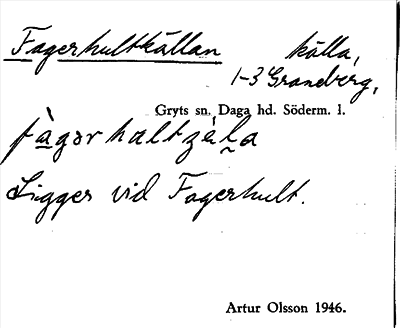 Fagerhultkällan källa,
1-3 Graneberg,
Gryts sn, Daga hd. Söderm. l.
Ligger vid Fagerhult.
Artur Olsson 1946.